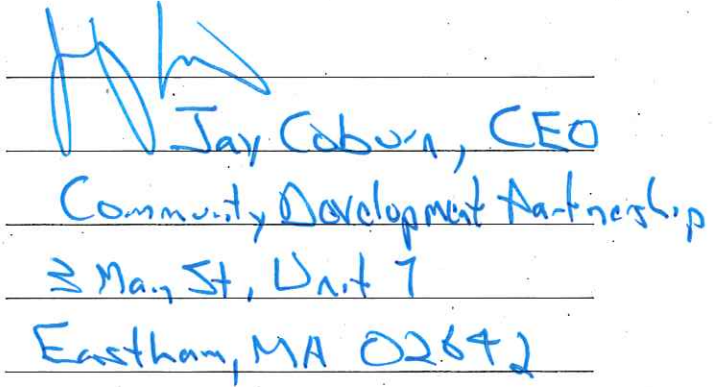 Jay Coburn, CEO
Community Development Partnership
3 Main St, Unit 7
Eastham, MA 02642